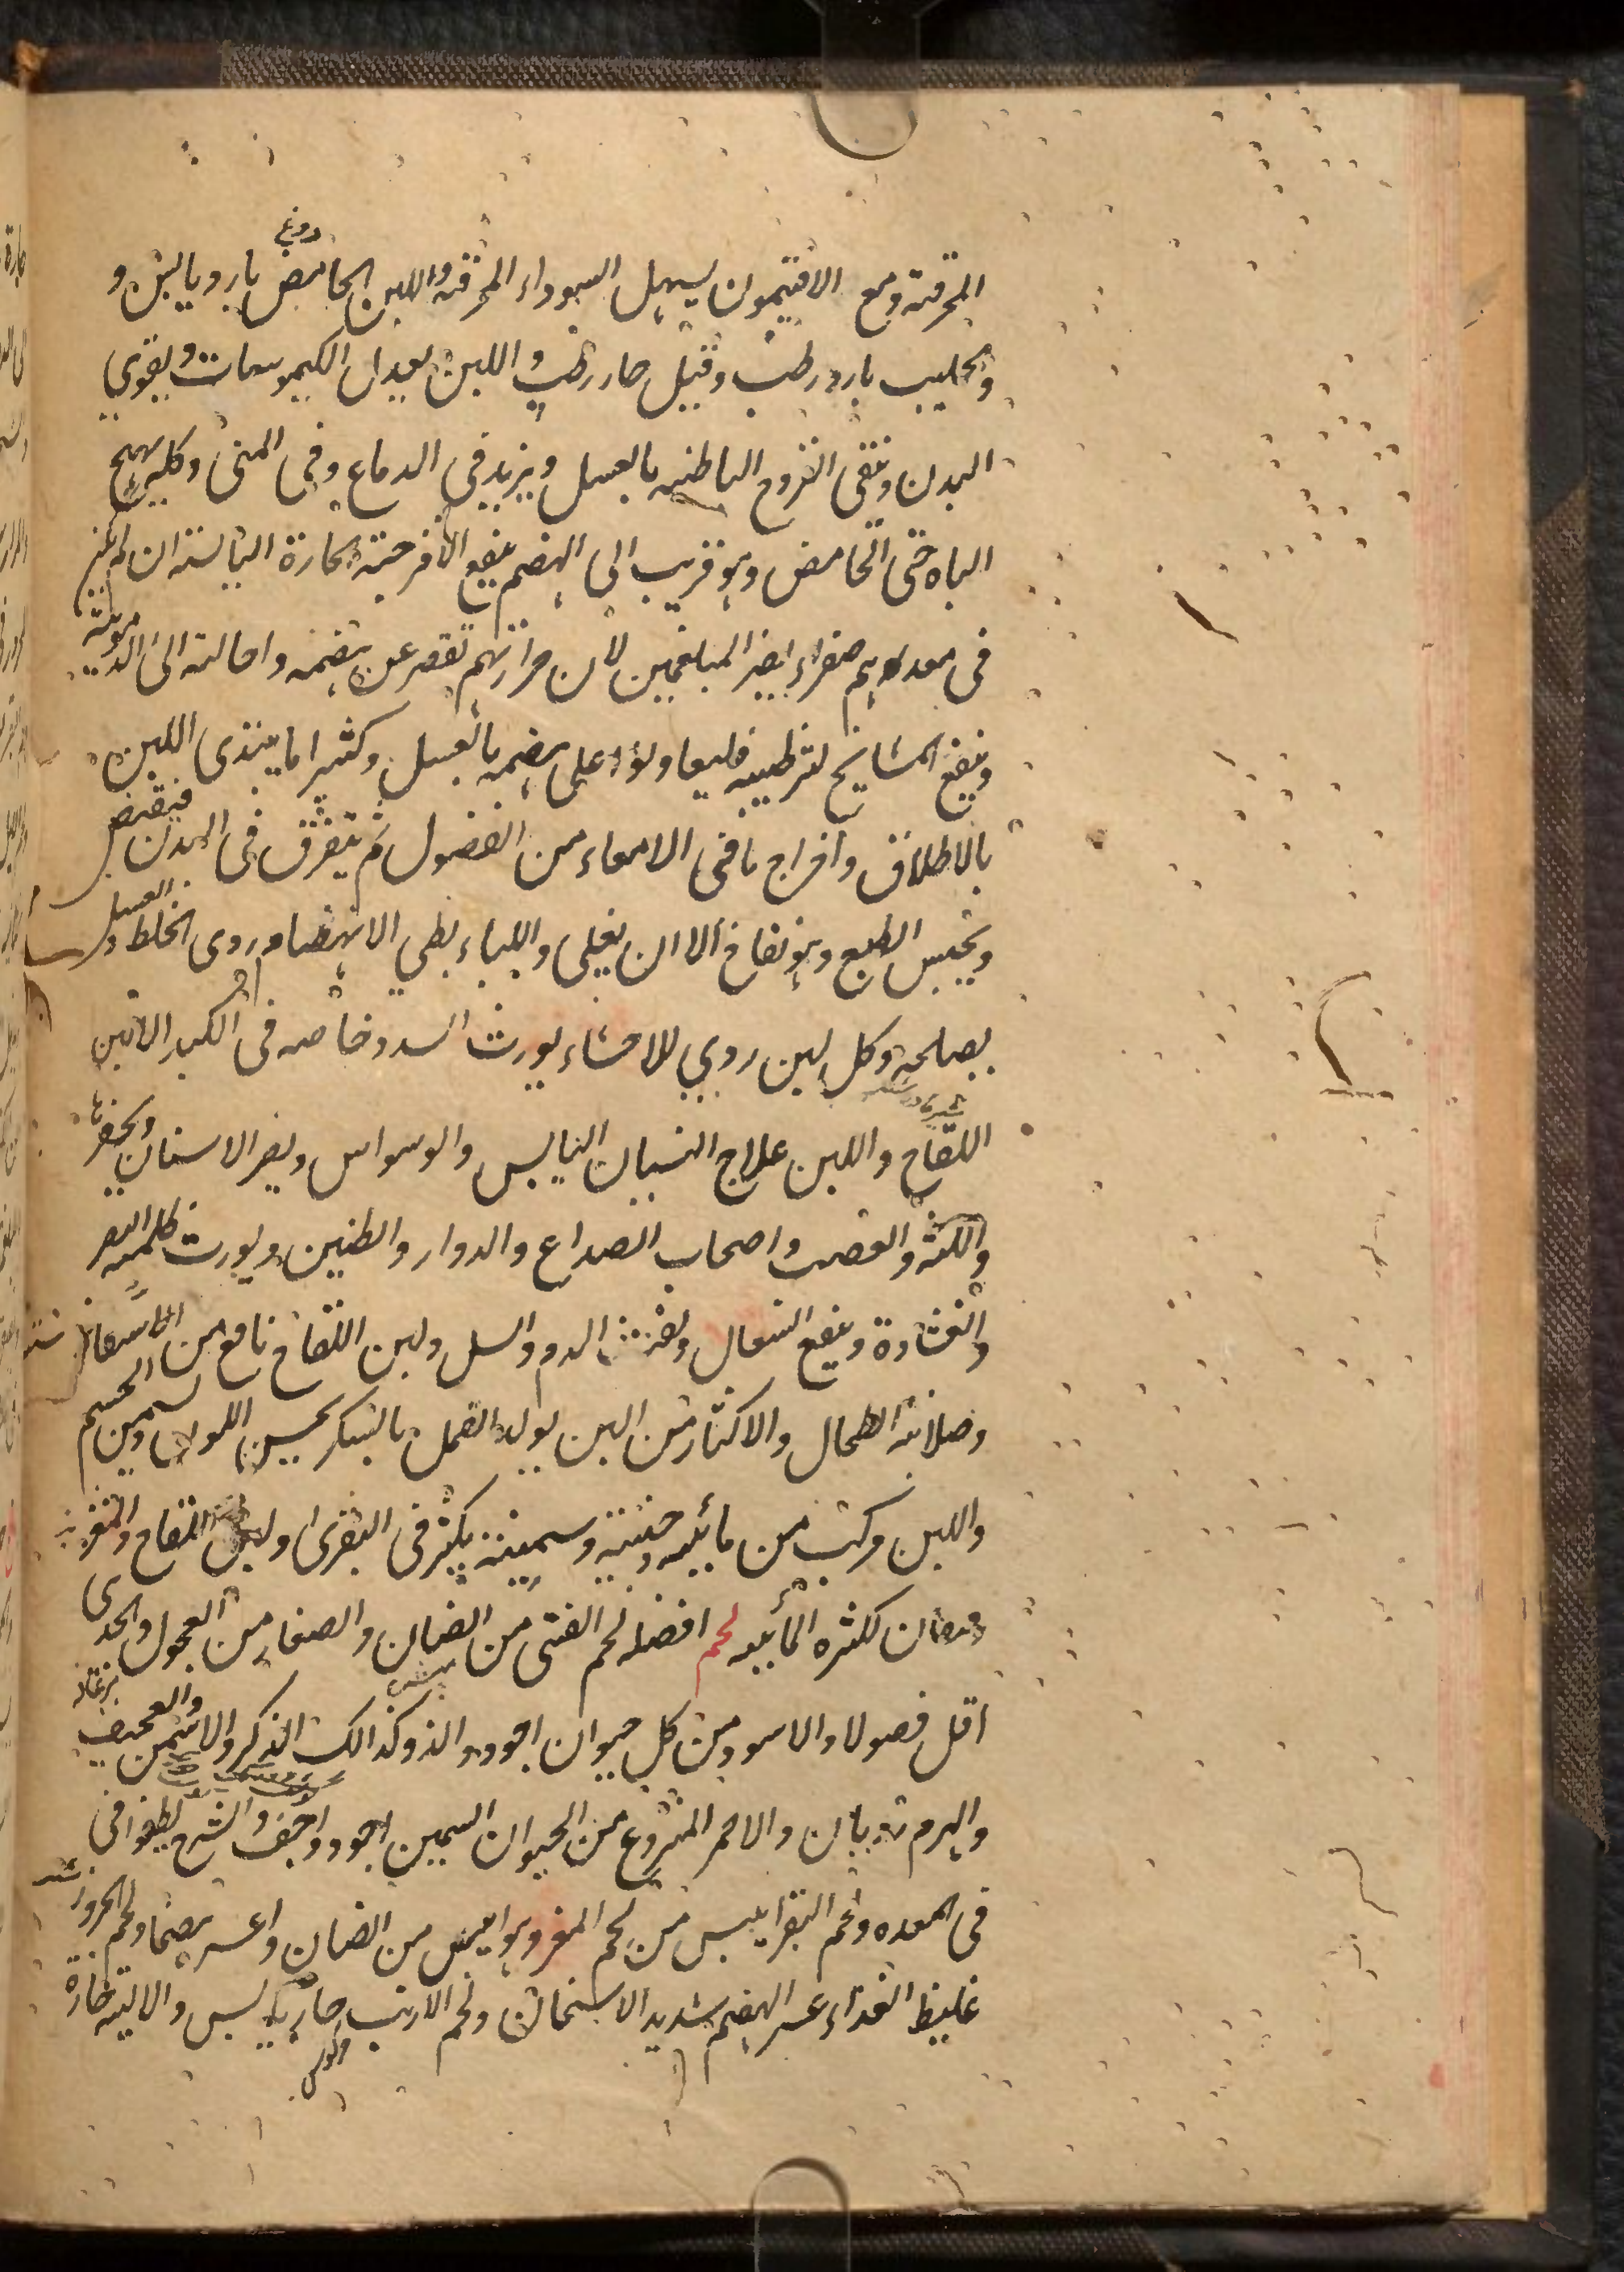 دوغ
المحرقة ومع الافتيمون يسهل السوداء المحرقة واللبن الحامض بارد يابس و
والحليب بارد رطب وقيل حار رطب واللبن يعدل الكيموسات ويقوي
البدن وينقى القروح الباطنه بالعسل ويزيد في الدماغ وفى المنى وكله يهيج
الباه حتى الحامض وهو قريب الى الهضم ينفع الامزجة الحارة اليابسة ان لم يكن
فى معدهم صفراء يضر المبلغمين لان حرارتهم تقصر عن هضمه واحالته الى الدموية
وينفع المشايخ لترطيبه على هضمه بالعسل وكثيرا ما يبتدى اللبن
بالاطلاق واخراج ما فى الامعاء من الفضول ثم يتفرق فى البدن فيقبض
ويحبس الطبع وهو نفاخ الا ان يغلى واللباء بطى الانهضام ردى الخلط والعسل
يصلحه وكل لبن ردي للاحشاء يورث السدد خاصه فى الكبد الا لبن
اللقاح واللبن علاج النسيان اليابس والوسواس ويضر الاسنان ويحفرها
واللثه والعصب واصحاب الصداع والدوار والطنين ويورث ظلمه البصر
والغشاوة وينفع السعال ونفث الدم والسل ولبن اللقاح نافع من الاستسقاء
وصلابة الطحال والاكثار من اللبن يولد القمل بالسكر يحسن اللون ويسمن الجسم
واللبن مركب من مائيه جبنية وسمنية يكثر فى البقرى ولبن اللقاح
لكثره المائيه لحم افضله لحم الفتى من الضان والصغار من العجول والجدى
بزغاله
اقل فصولا والاسود من كل حيوان اجود والذ وكذالك الذكر والاسمن والعجيف
والهرم رديان والاحمر المنزوع من الحيوان السمين اجود واخف والشرح يطفوا فى
فى المعده ولحم البقر ايبس من لحم المعز وهو ايبس من الضان واعسر هضما ولحم الجزور
غليظ الغذاء عسر الهضم شديد الاسخان ولحم الارنب حار يابس والالية حارة